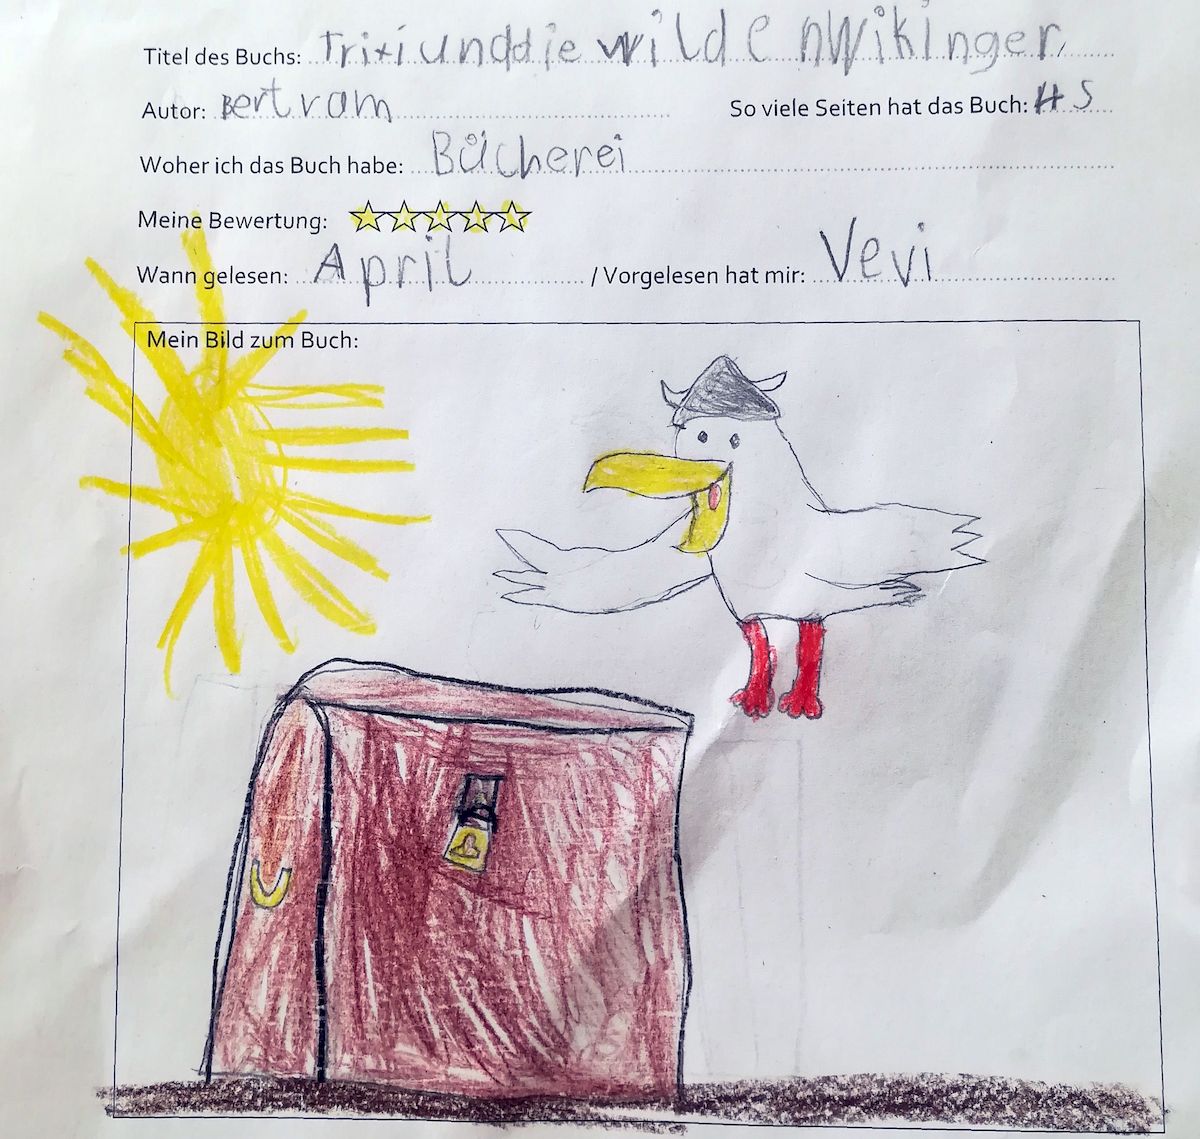 Titel des Buchs: Trixi und die wilden Wikinger
Autor: Bertram So viele Seiten hat das Buch:
Woher ich das Buch habe: Bücherei
Meine Bewertung:
Wann gelesen: April / Vorgelesen hat mir: Vevi
Mein Bild zum Buch: